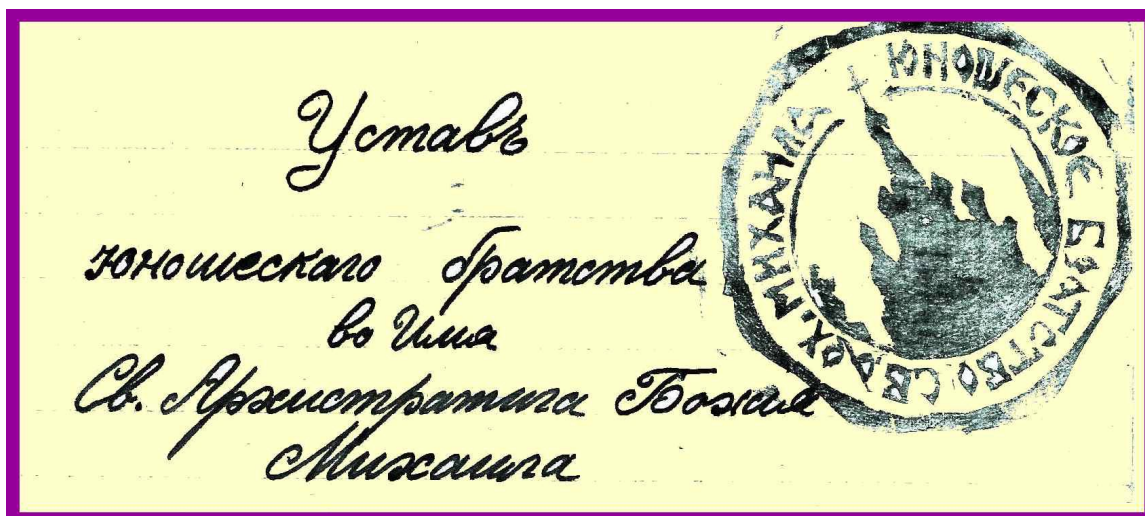 Уставъ
юношескаго братства
во Имя
Св. Архистратига Божия
Михаила
ЮНОШЕСКОЕ БРАТСТВО СВ. АРХ. МИХАИЛА